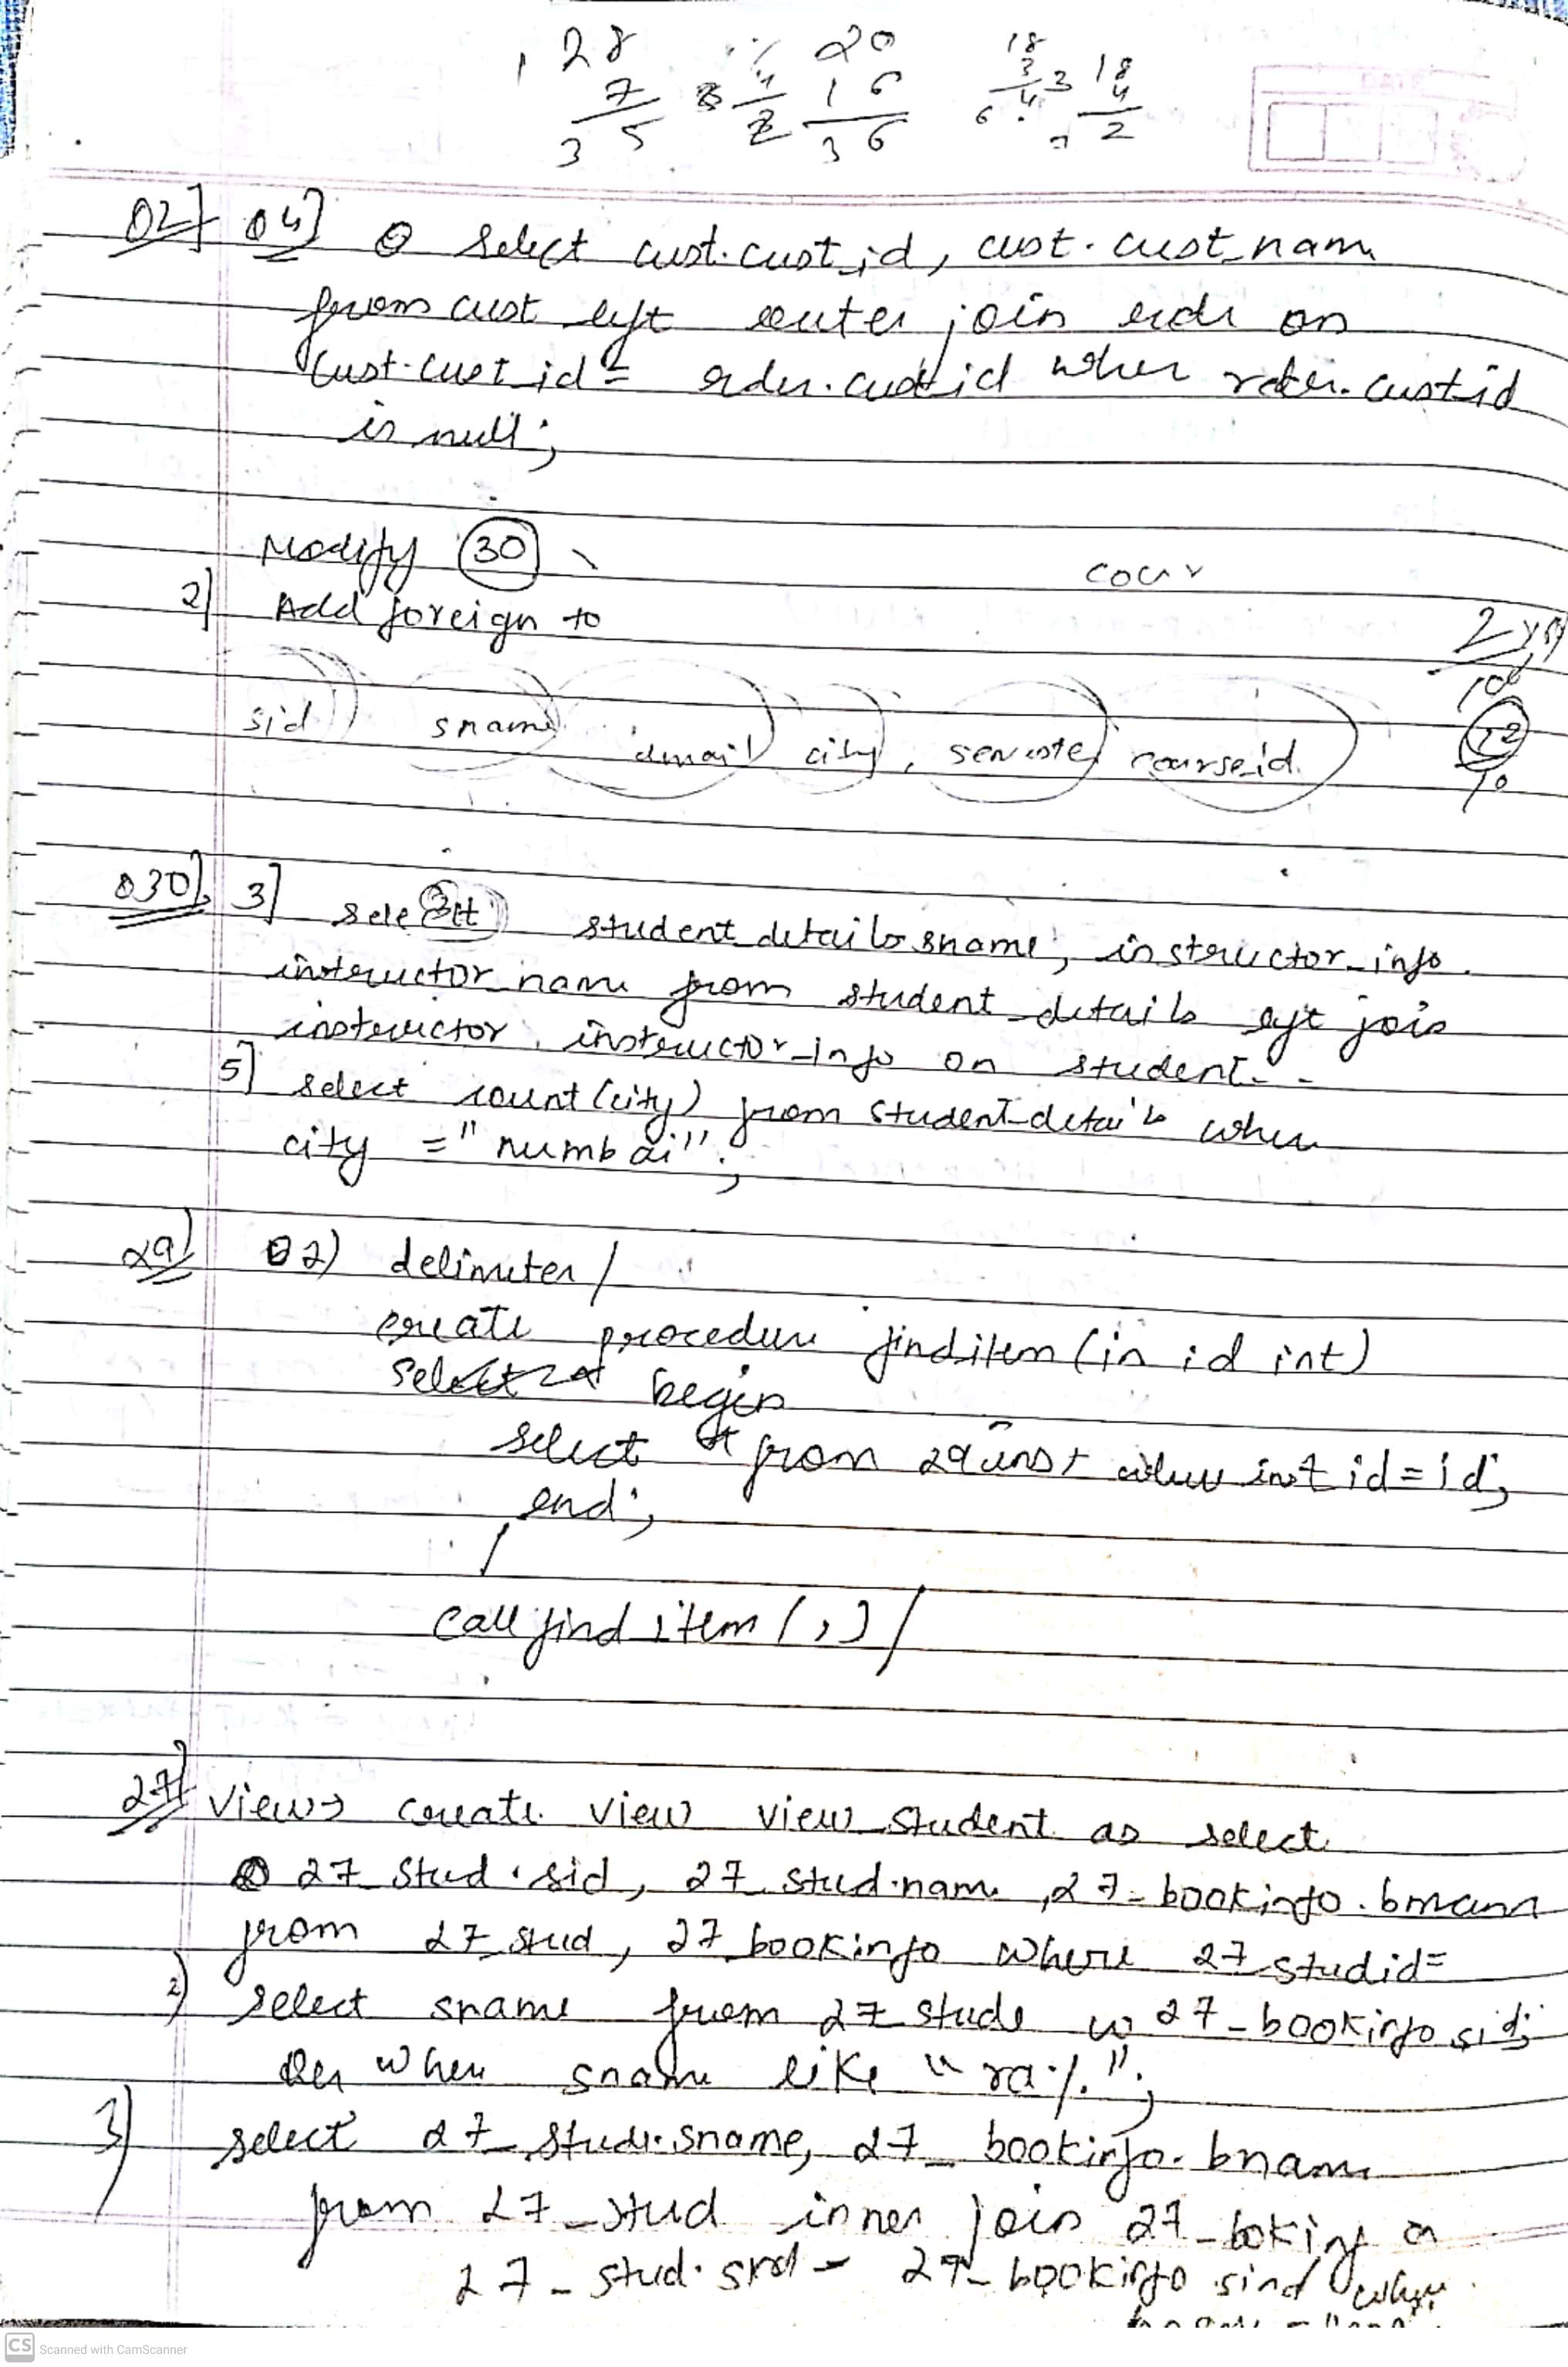 1 28 20 18
7 8 4 16 3 3 18
3 5 2 36 6 4 4
2
02] 04] select cust.cust_id, cust.cust_nam
from cust left outer join order on
cust.cust_id = order.custid wher order.custid
is null;
Modify 30
cour
2] Add foreign to
sid sname email city, semester courseid.
12
10
030] 3] select student_details sname, instructor_info.
instructor_name from student_details left join
instructor instructor_info on student--
5] select count(city) from student_details where
city = "mumbai";
29] 02) delimiter /
create procedure finditem (in id int)
begin
select * from 29inst where inst id = id;
end;
/
call find item (,) /
27] view→ create view view_student as select
27_Stud.sid, 27_stud.name, 27_bookinfo.bname
from 27_stud, 27_bookinfo where 27_studid=
2) select sname from 27_stude 27_bookinfo sid;
when sname like "ra%";
3) select 27_stude.sname, 27_bookinfo.bname
from 27_stud inner join 27_bokinf on
27_stud.sid = 27_bookinfo sind wher
CS Scanned with CamScanner